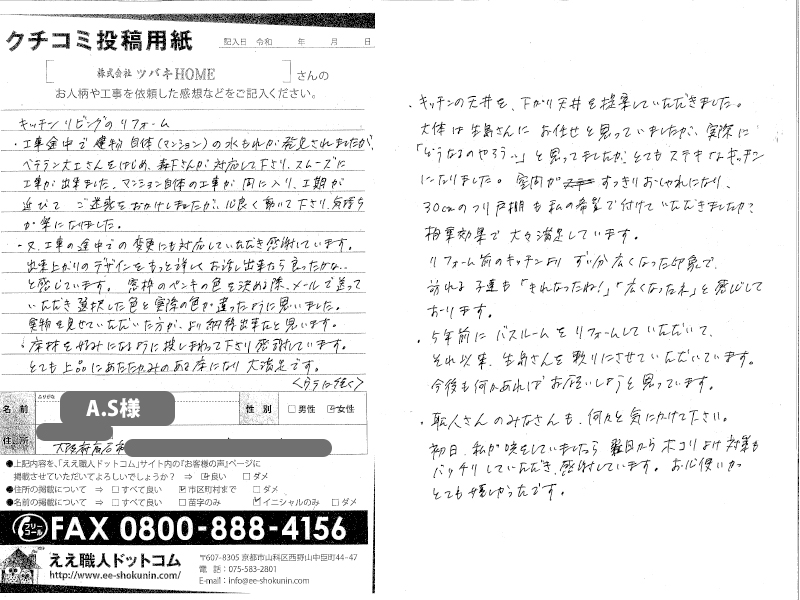 クチコミ投稿用紙
記入日 令和 年 月 日
株式会社 ツバキHOME さんの
お人柄や工事を依頼した感想などをご記入ください。
キッチンリビングのリフォーム
・工事途中で建物自体(マンション)の水もれが発見されましたが、
ベテラン大工さんをはじめ、森下さんが対応して下さり、スムーズに
工事が出来ました。マンション自体の工事が間に入り、工期が
延びて ご迷惑をおかけしましたが、心良く動いて下さり、気持ち
が楽になりました。
・又、工事の途中での変更にも対応していただき感謝しています。
出来上がりのデザインをもっと詳しくお話し出来たら良かったかな、、
と感じています。窓枠のペンキの色を決める際、メールで送って
いただき選択した色と実際の色が違ったように思いました。
実物を見せていただいた方が、より納得出来たと思います。
・床材を好みになるように探しまわって下さり感謝しています。
とても上品にあたたかみのある床になり大満足です。
<ウラに続く>
名前 ふりがな A.S様 性別 □男性 ☑女性
住所 大阪府高石
●上記内容を、「ええ職人ドットコム」サイト内の『お客様の声』ページに
掲載させていただいてよろしいでしょうか? ⇒ ☑良い □ダメ
●住所の掲載について ⇒ □すべて良い ☑市区町村まで □ダメ
●名前の掲載について ⇒ □すべて良い □苗字のみ ☑イニシャルのみ □ダメ
フリーコール FAX 0800-888-4156
ええ職人ドットコム
http://www.ee-shokunin.com/
〒607-8305 京都市山科区西野山中臣町44-47
電 話：075-583-2801
E-mail：info@ee-shokunin.com
・キッチンの天井を、下がり天井を提案していただきました。
大体は生島さんに お任せと思っていましたが、実際に
「どうなるのやろう…」と思ってましたが、とてもステキなキッチン
になりました。空間が すっきりおしゃれになり、
30cmのつり戸棚も私の希望で付けていただきましたが、
相乗効果で大々満足しています。
リフォーム前のキッチンより ずい分広くなった印象で、
訪れる子達も「きれなったね!」「広くなったネ」と感じして
おります。
・5年前にバスルームをリフォームしていただいて、
それ以来、生島さんを頼りにさせていただいています。
今後も何かあればお願いしようと思っています。
・職人さんのみなさんも、何かと気にかけて下さい。
初日、私が咳をしていましたら翌日からホコリよけ対策も
バッチリしていただき、感謝しています。お心使いが
とても嬉しかったです。